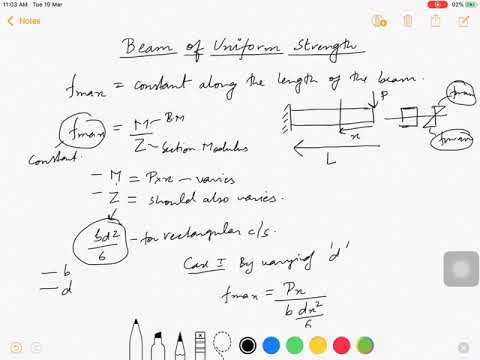 11:03 AM Tue 19 Mar
92%
Notes
Beam of Uniform Strength
fmax = constant along the length of the beam.
fmax = M/Z
BM
Section Modulus
constant
P
fmax
fmax
x
L
- M = P×x - varies
- Z = should also varies.
bd²/6 - for rectangular c/s.
- b
- d
Case I By varying 'd'
fmax = Px / (b dx²/6)